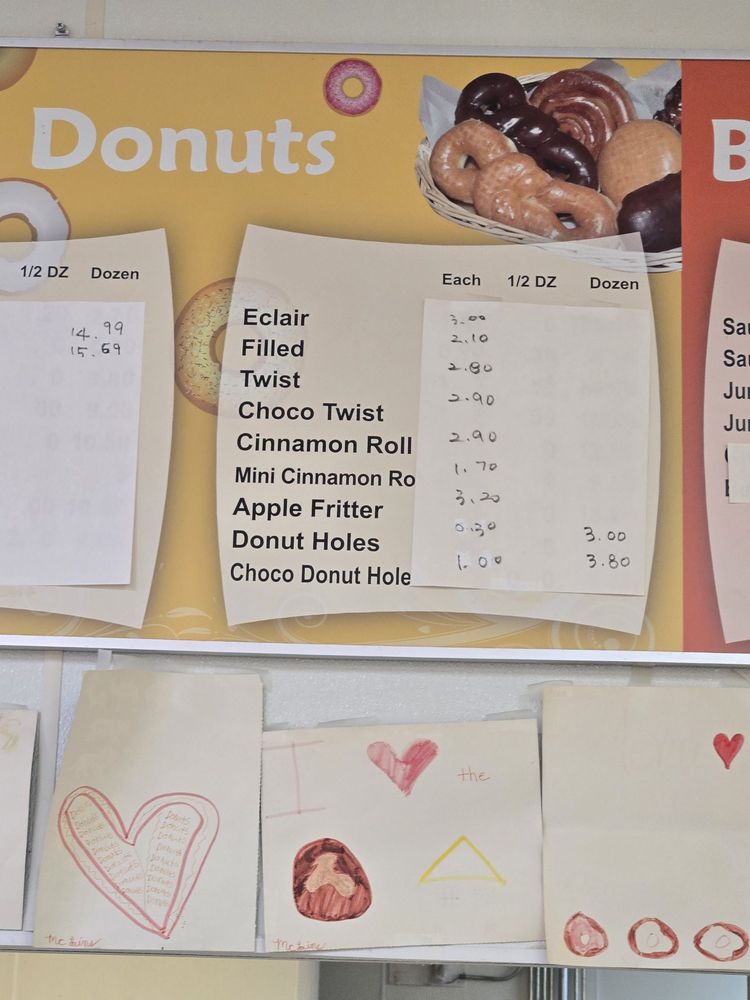 Donuts
B
1/2 DZ Dozen
14.99
15.69
Each 1/2 DZ Dozen
Eclair 3.00
Filled 2.10
Twist 2.80
Choco Twist 2.90
Cinnamon Roll 2.90
Mini Cinnamon Ro 1.70
Apple Fritter 3.20
Donut Holes 0.30 3.00
Choco Donut Hole 1.00 3.80
Sau
Sau
Jun
Jun
I the